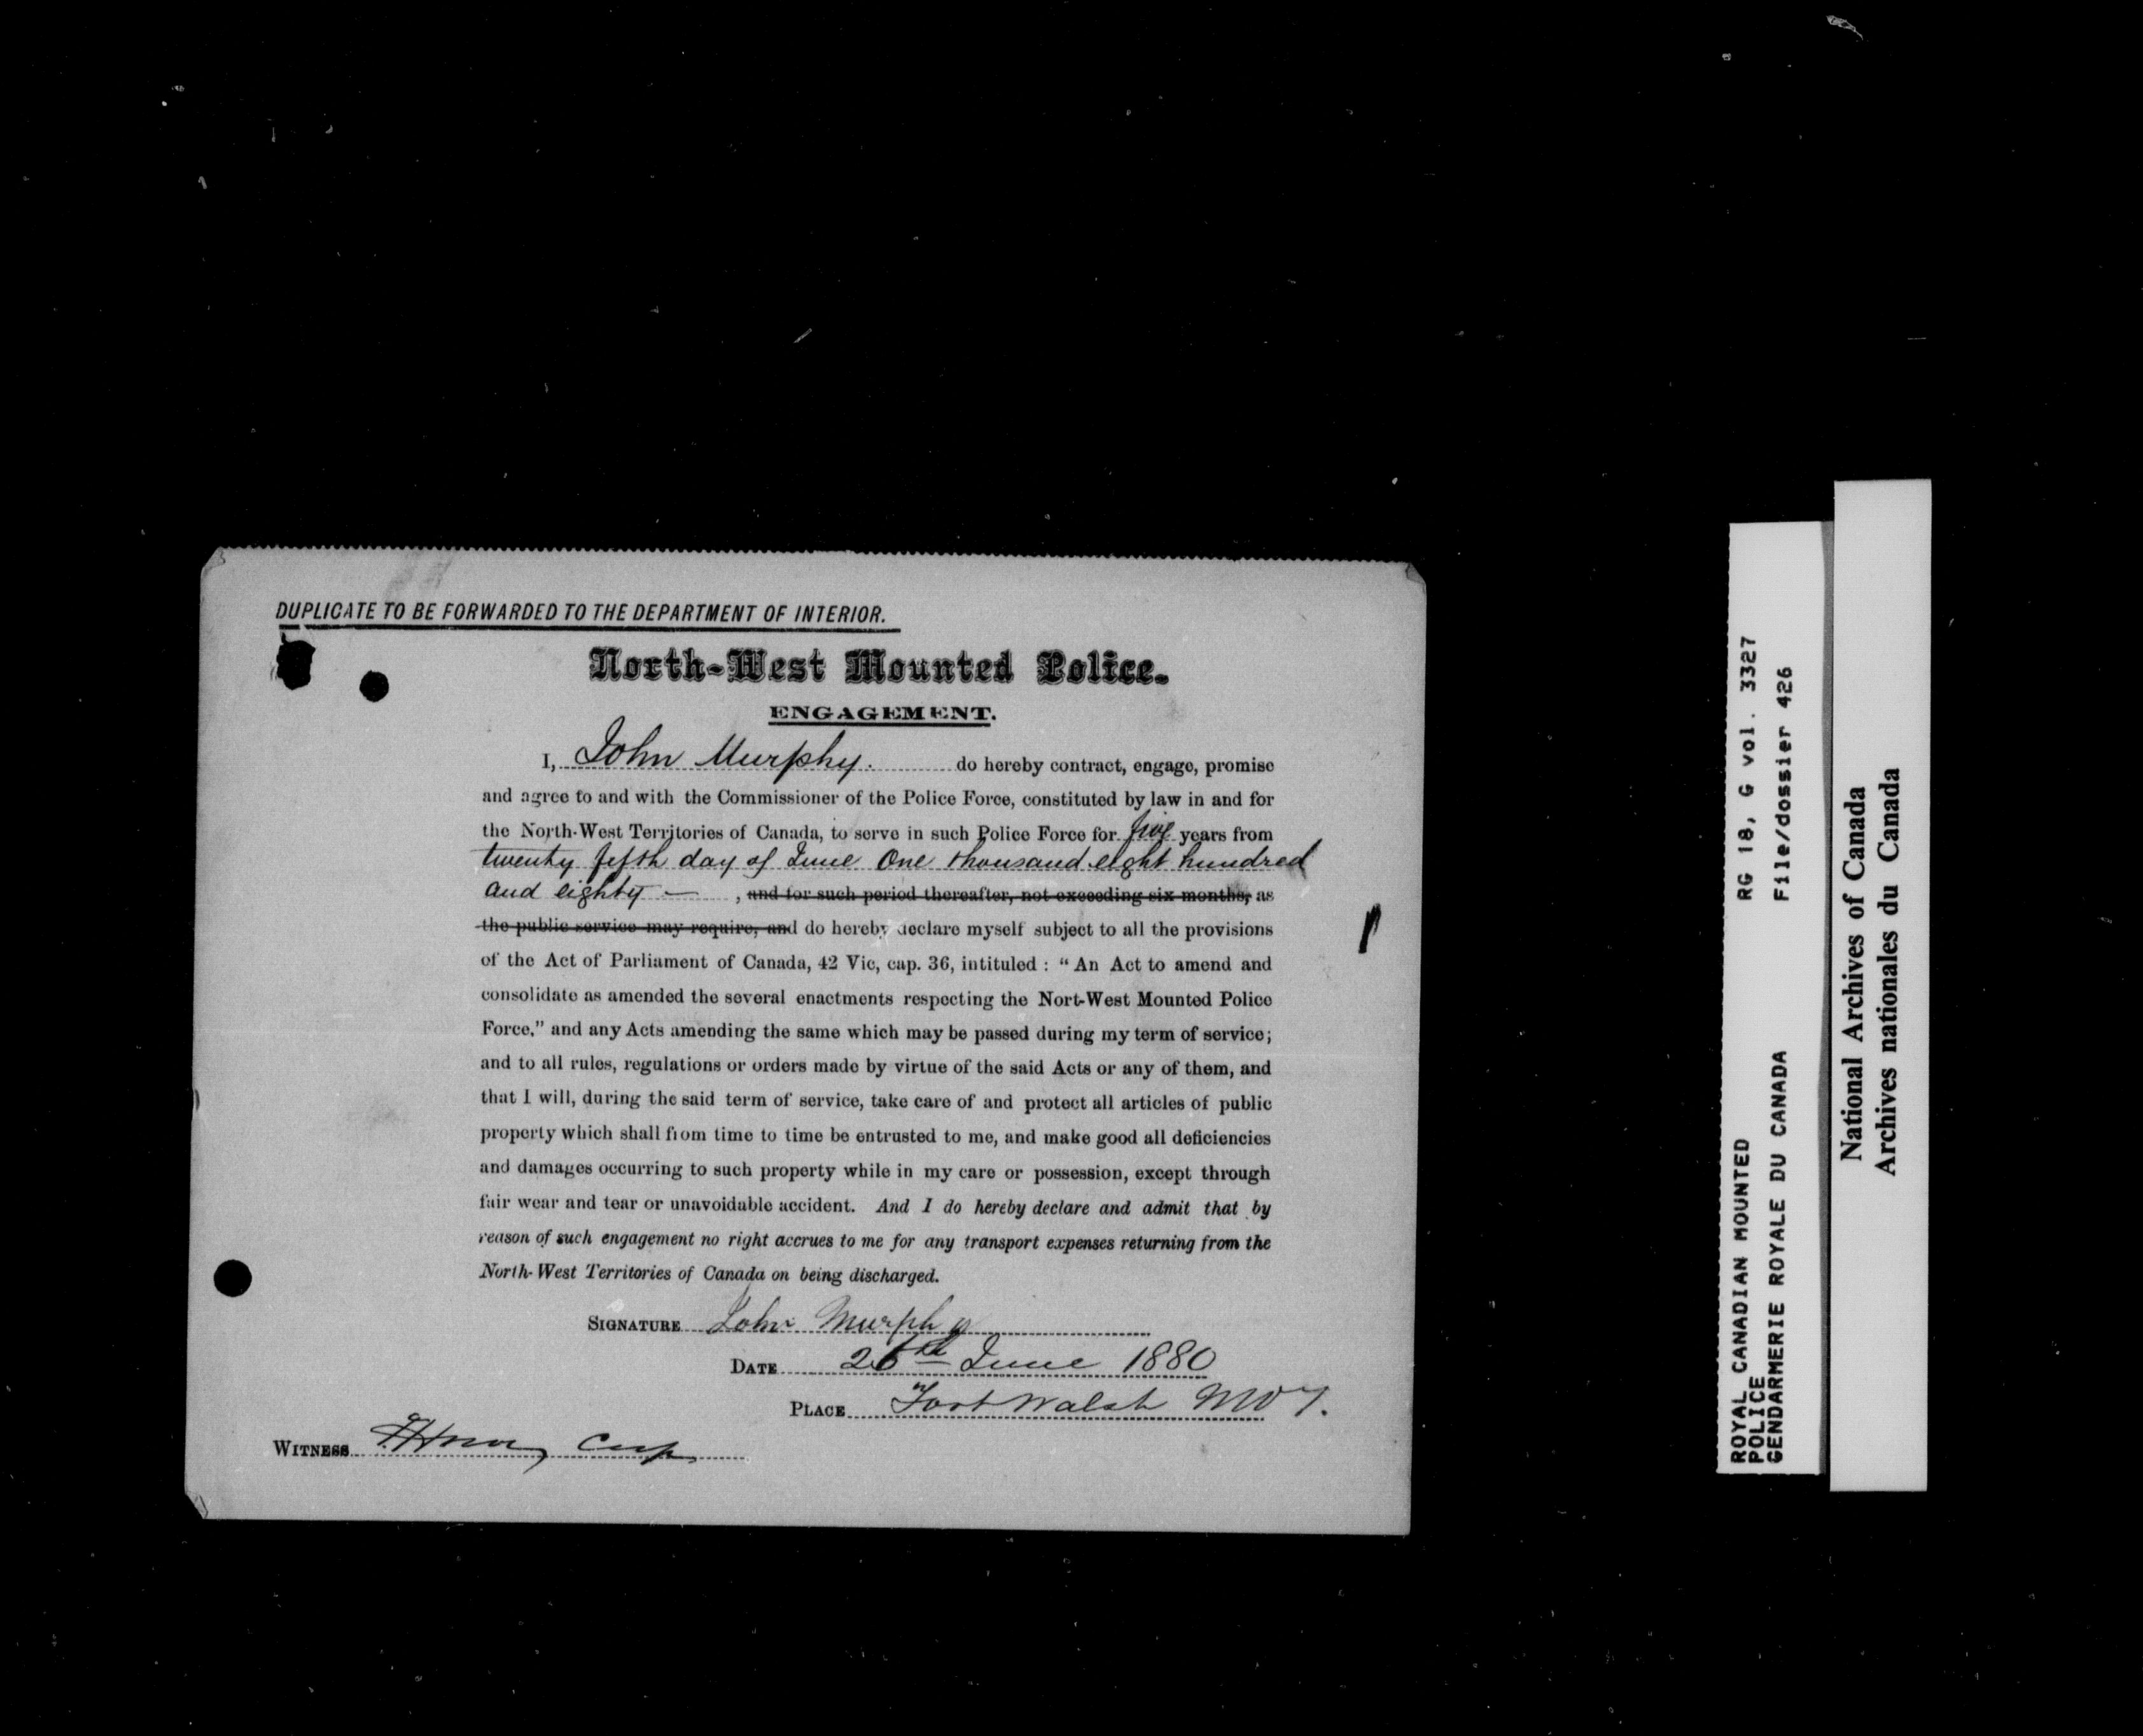 DUPLICATE TO BE FORWARDED TO THE DEPARTMENT OF INTERIOR.
North-West Mounted Police.
ENGAGEMENT.
I, John Murphy. do hereby contract, engage, promise
and agree to and with the Commissioner of the Police Force, constituted by law in and for
the North-West Territories of Canada, to serve in such Police Force for five years from
twenty fifth day of June One thousand eight hundred
and eighty — , and for such period thereafter, not exceeding six months, as
the public service may require, and do hereby declare myself subject to all the provisions
of the Act of Parliament of Canada, 42 Vic, cap. 36, intituled : “ An Act to amend and
consolidate as amended the several enactments respecting the Nort-West Mounted Police
Force,” and any Acts amending the same which may be passed during my term of service;
and to all rules, regulations or orders made by virtue of the said Acts or any of them, and
that I will, during the said term of service, take care of and protect all articles of public
property which shall from time to time be entrusted to me, and make good all deficiencies
and damages occurring to such property while in my care or possession, except through
fair wear and tear or unavoidable accident. And I do hereby declare and admit that by
reason of such engagement no right accrues to me for any transport expenses returning from the
North-West Territories of Canada on being discharged.
SIGNATURE John Murphy
DATE June 1880
PLACE Fort Walsh NWT.
WITNESS Corp
ROYAL CANADIAN MOUNTED RG 18, G vol. 3327
POLICE
GENDARMERIE ROYALE DU CANADA File/dossier 426
National Archives of Canada
Archives nationales du Canada